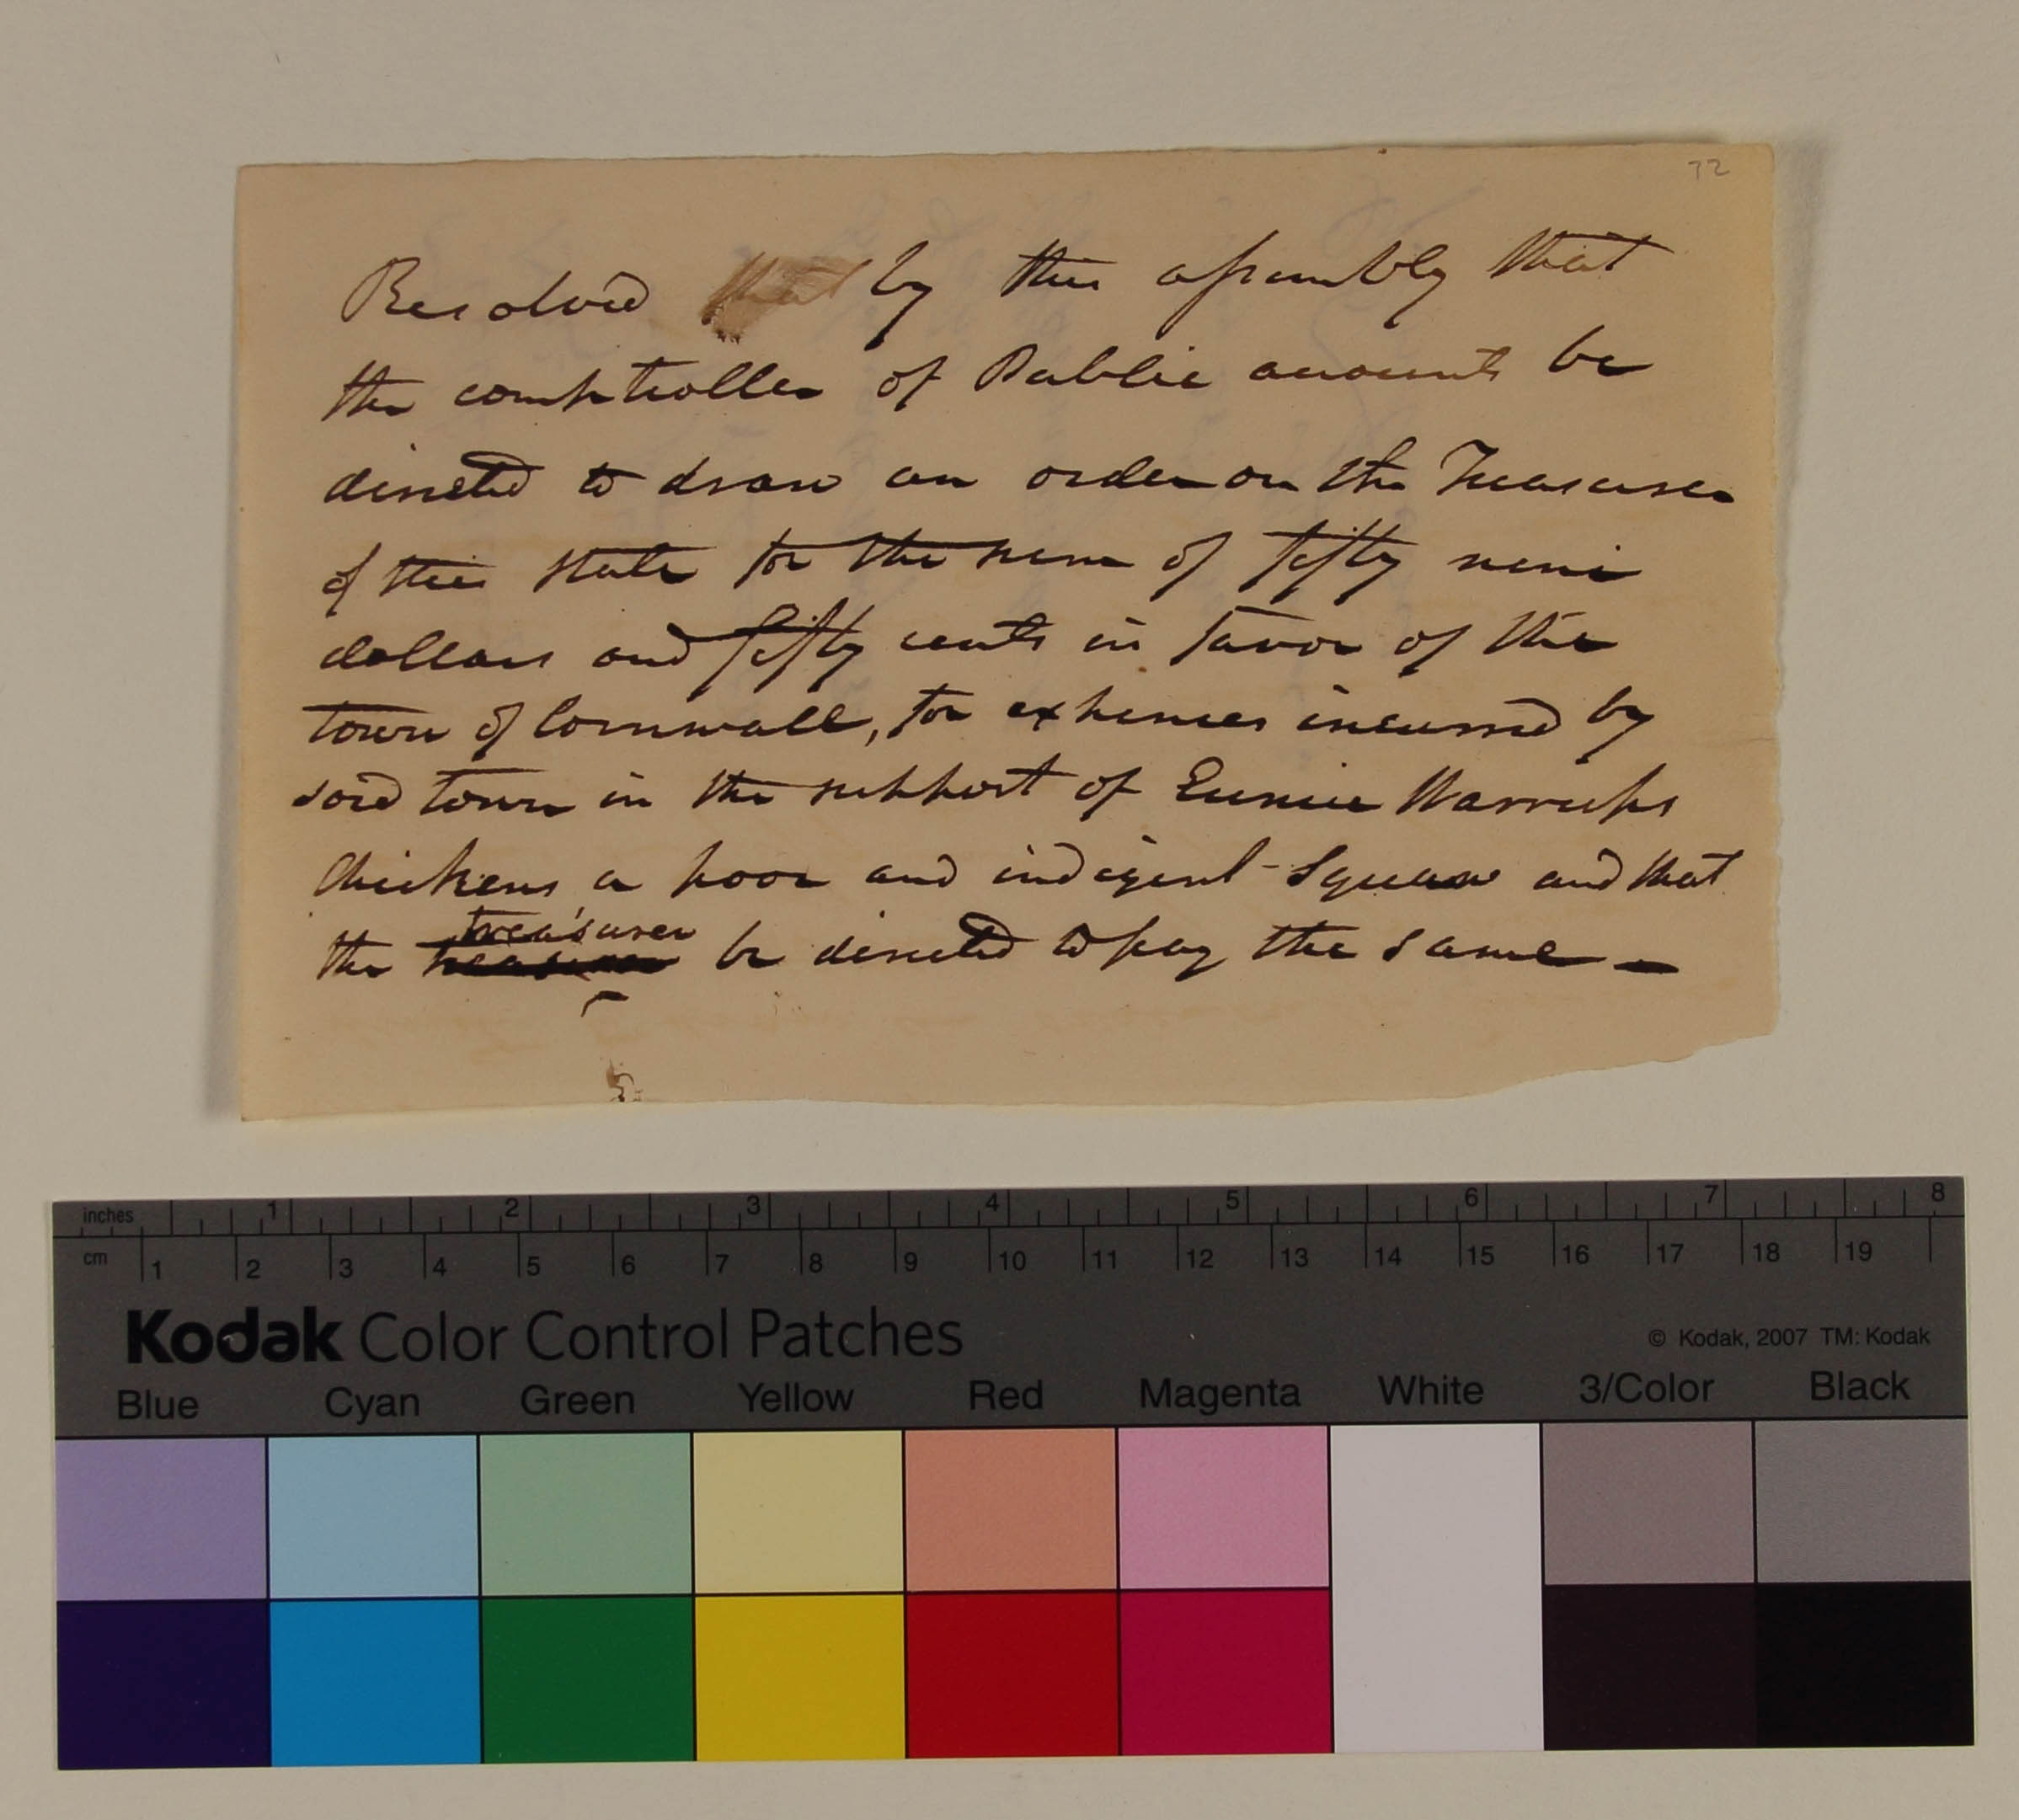 72
Resolved that by this assembly that
the comptroller of Public accounts be
directed to draw an order on the Treasurer
of this State for the sum of fifty nine
dollars and fifty cents in favor of the
town of Cornwall, for expenses incurred by
said town in the support of Eunice Warrups
Chickens a poor and indigent Squaw and that
treasurer
the treasurer be directed to pay the same —
inches 1 2 3 4 5 6 7 8
cm 1 2 3 4 5 6 7 8 9 10 11 12 13 14 15 16 17 18 19
Kodak Color Control Patches © Kodak, 2007 TM: Kodak
Blue Cyan Green Yellow Red Magenta White 3/Color Black